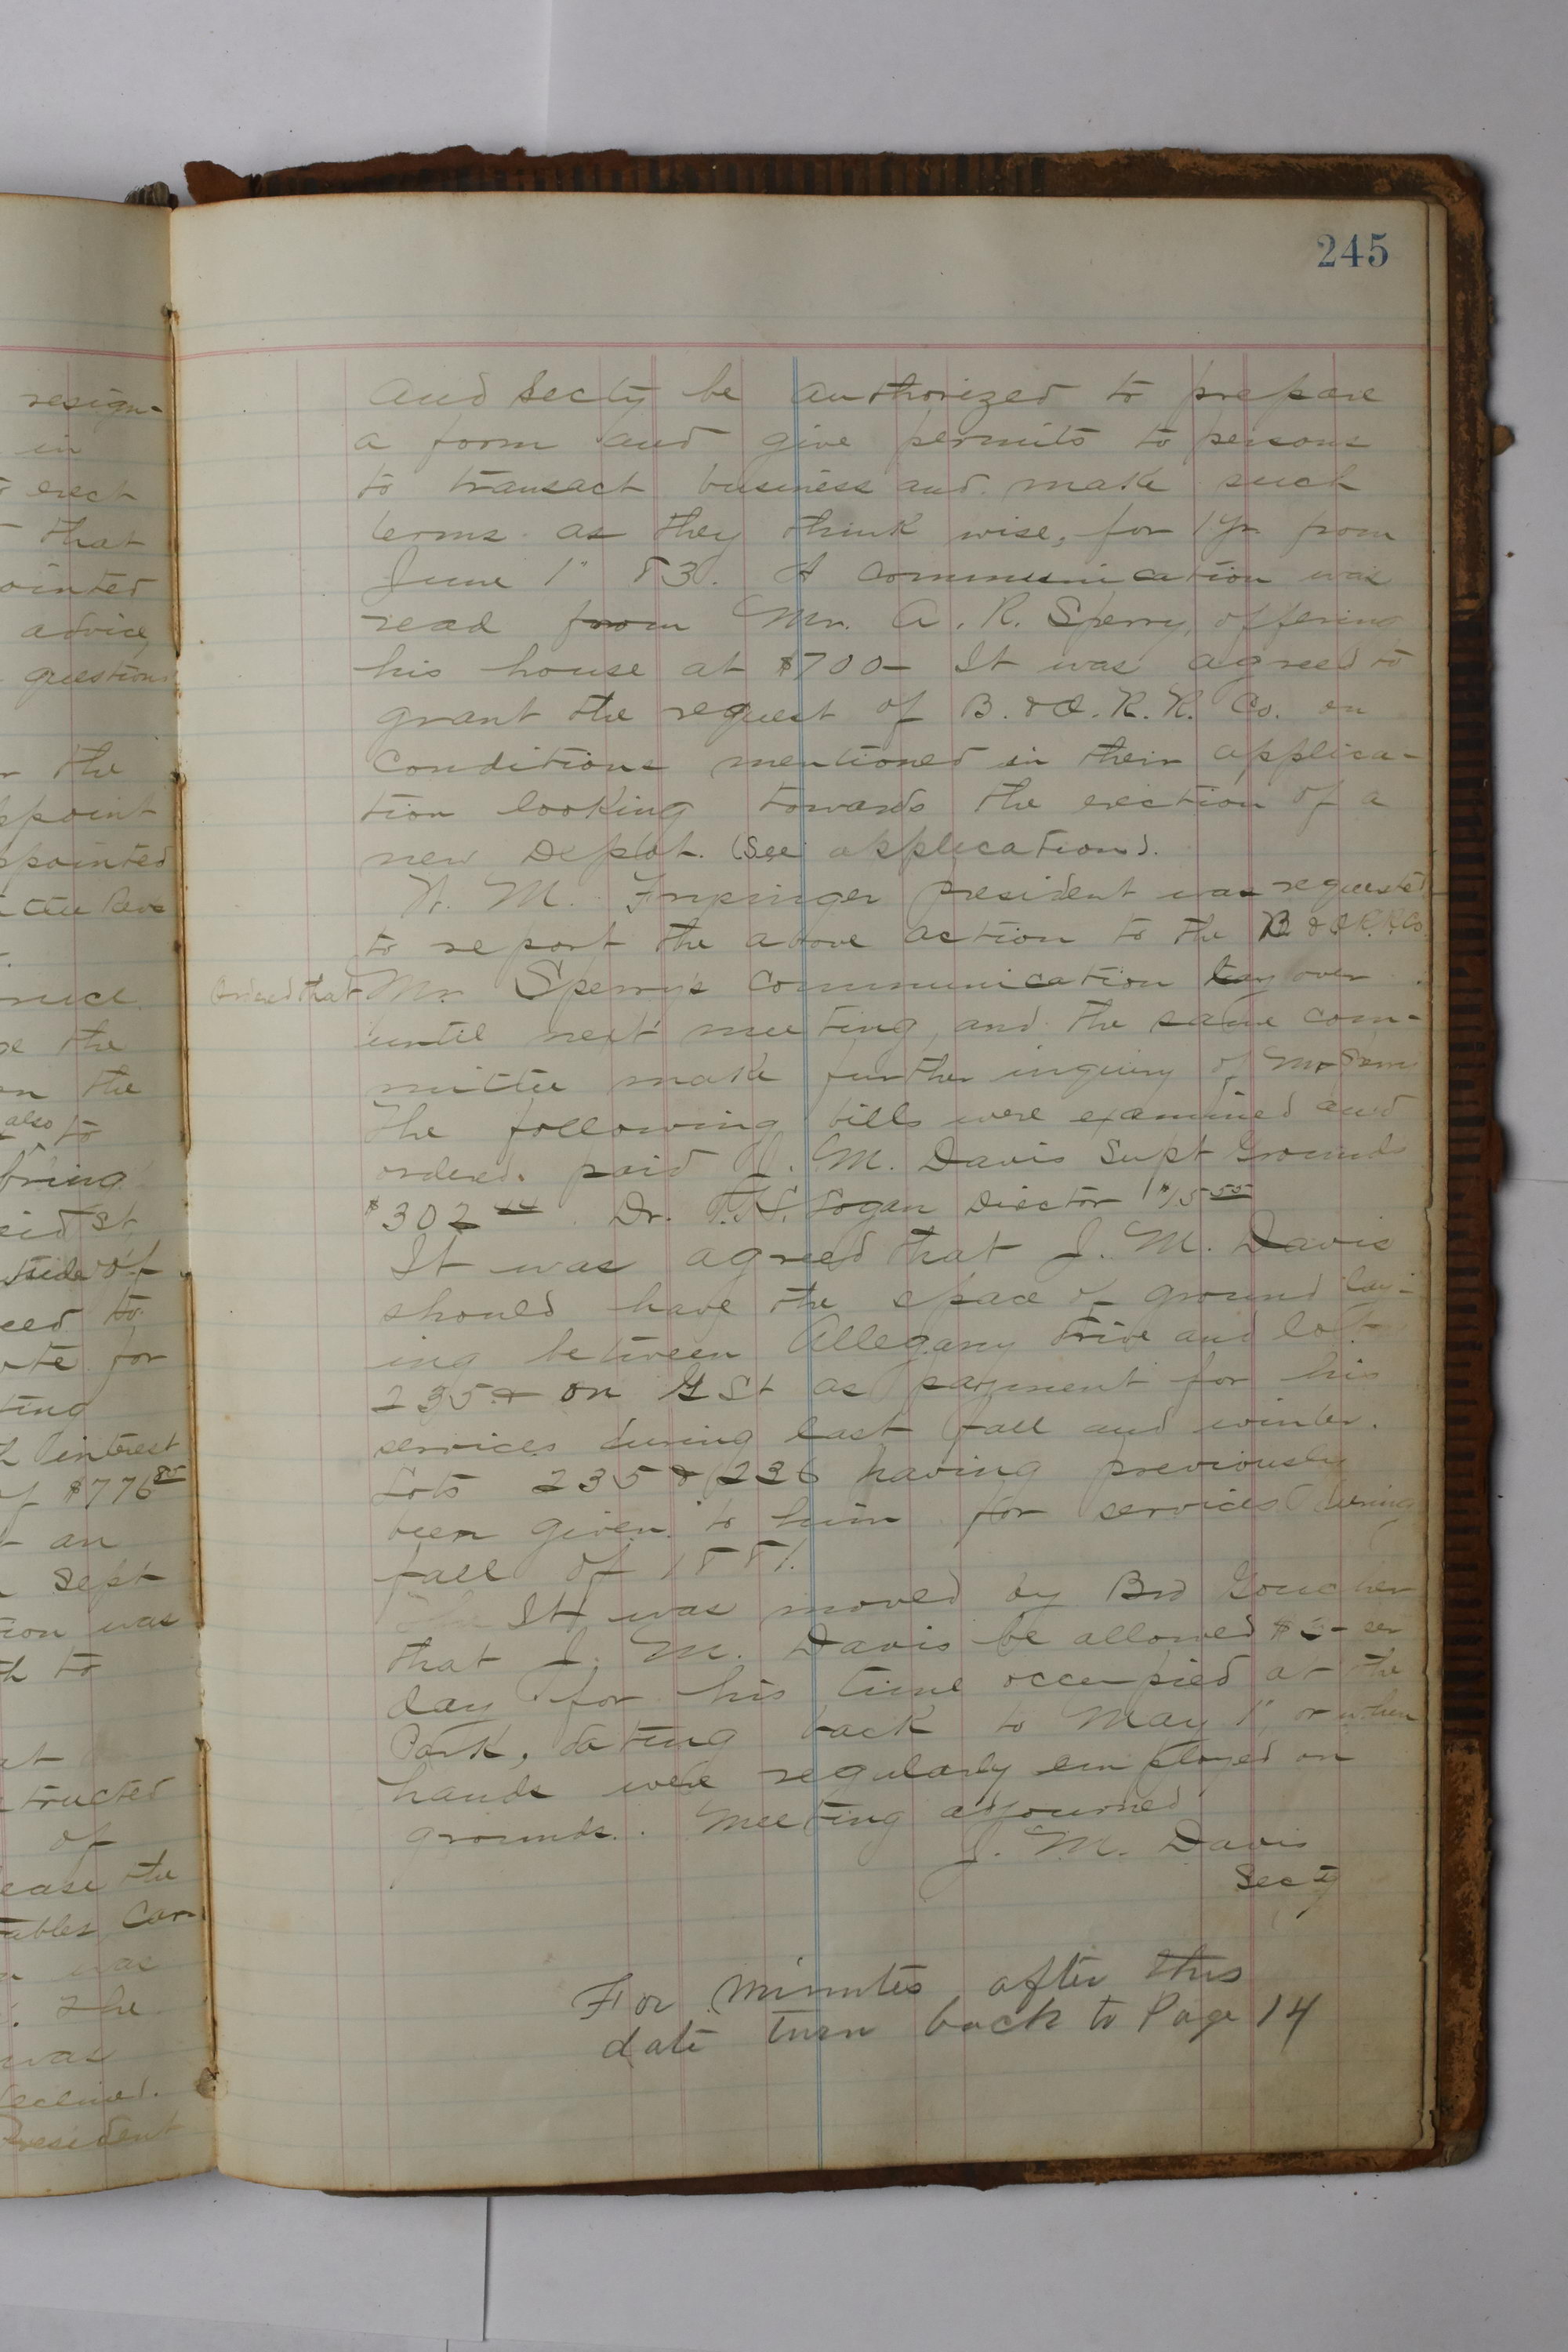 245
resign-
in
erect
that
ointed
advice,
questions
the
ppoint
ppointed
the
on the
also to
bring
side of
ceed to
ote for
ting
interest
of $776 85
an
Sept
tion was
to
at
tructed
of
ease the
ables Car
was
The
was
declined.
President
and Secty be authorized to prepare
a form and give permits to persons
to transact business and make such
terms as they think wise, for 1 yr from
June 1" 83. A communication was
read from Mr. A. R. Sperry, offering
his house at $700- It was agreed to
grant the request of B. & O. R. R. Co. on
Conditions mentioned in their applica-
tion looking towards the erection of a
new Depot. (See application).
M. president was requested
to report the above action to the B & O R.R. Co.
Ordered that Mr Sperry's Communication lay over
until next meeting, and the same com-
mittee make further inquiry of Mr
The following bills were examined and
ordered paid J. M. Davis Supt Grounds
$302 Dr. Logan Director $15 55
It was agreed that J. M. Davis
should have the space of ground lay-
ing between Allegany Drive and lot
235 on G St as payment for his
services during last fall and winter.
Lots 235 & 236 having previously
been given to him for services during
fall of 1881.
It was moved by Bro Goucher
that J. M. Davis be allowed $2- per
day for his time occupied at the
Park, dating back to May 1", or when
hands were regularly employed on
grounds. Meeting adjourned
J. M. Davis
Secty
For minutes after this
date turn back to Page 14